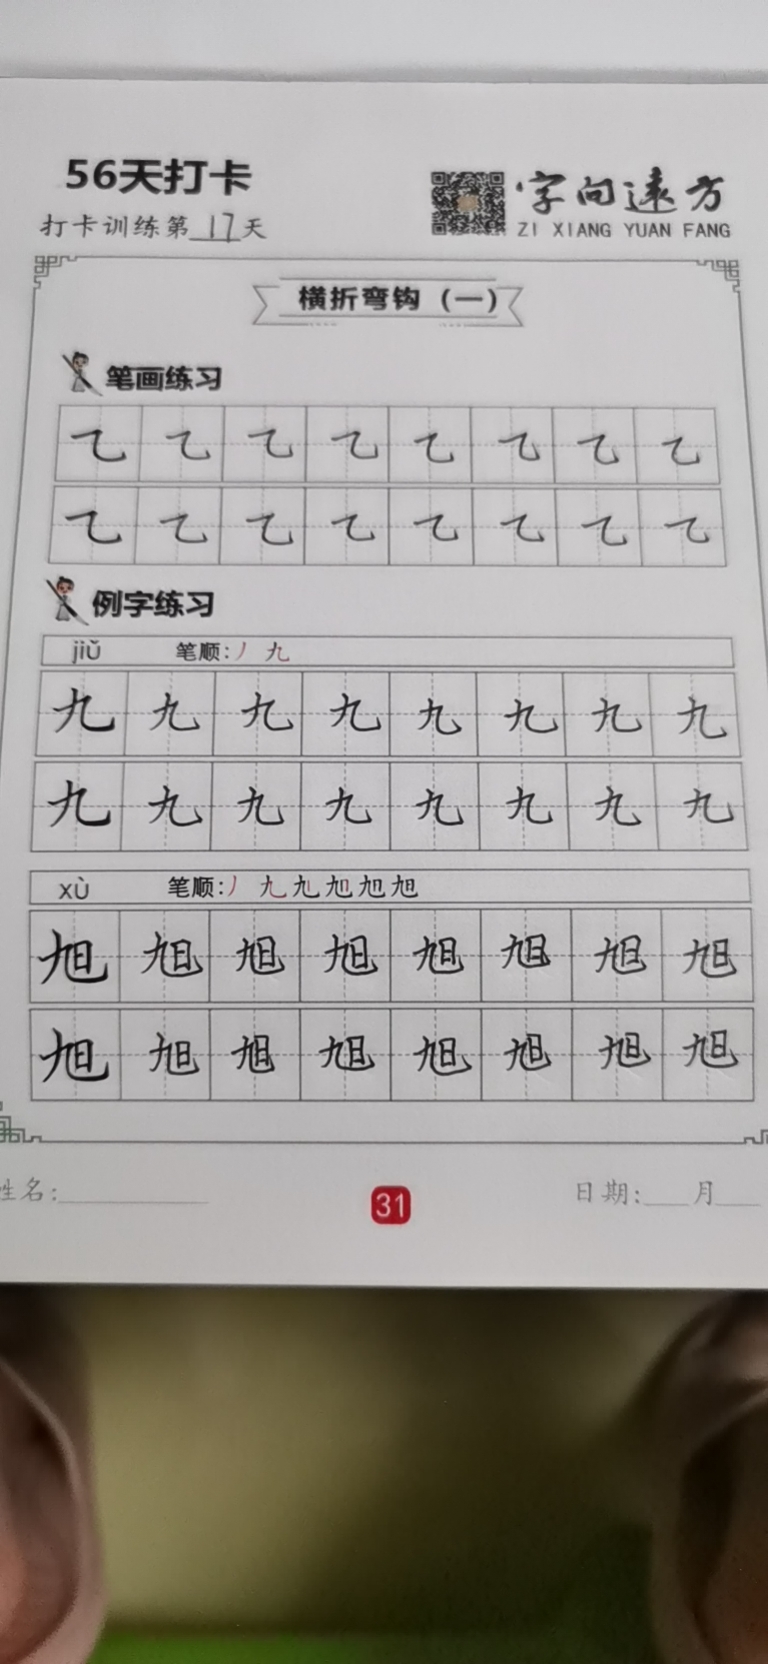 56天打卡
字向远方
打卡训练第17天
ZI XIANG YUAN FANG
横折弯钩（一）
笔画练习
乙 乙 乙 乙 乙 乙 乙 乙
乙 乙 乙 乙 乙 乙 乙 乙
例字练习
jiǔ 笔顺:丿 九
九 九 九 九 九 九 九 九
九 九 九 九 九 九 九 九
xù 笔顺:丿 九 旭 旭 旭 旭
旭 旭 旭 旭 旭 旭 旭 旭
旭 旭 旭 旭 旭 旭 旭 旭
姓名:
31
日期: 月